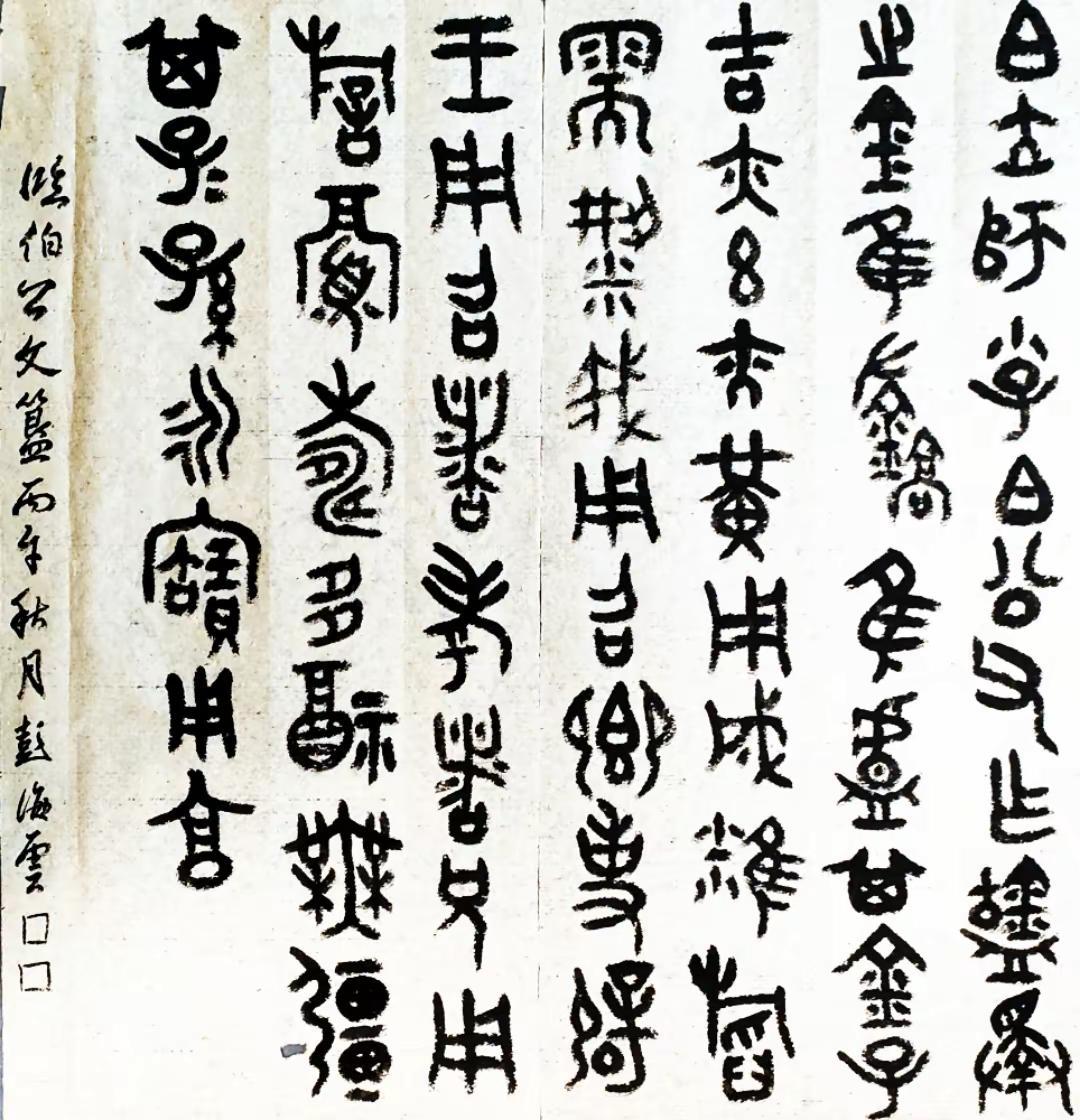 白大師小子白公父乍𥂴擇
之金隹鐈隹盧其金孔
吉亦玄亦黃用成糕稻
需粱我用召卿事辟
王用召者考者兄用
旂眉壽多福無疆
其子=孫=永寶用亯
臨伯公父簠丙午秋月彭海雲